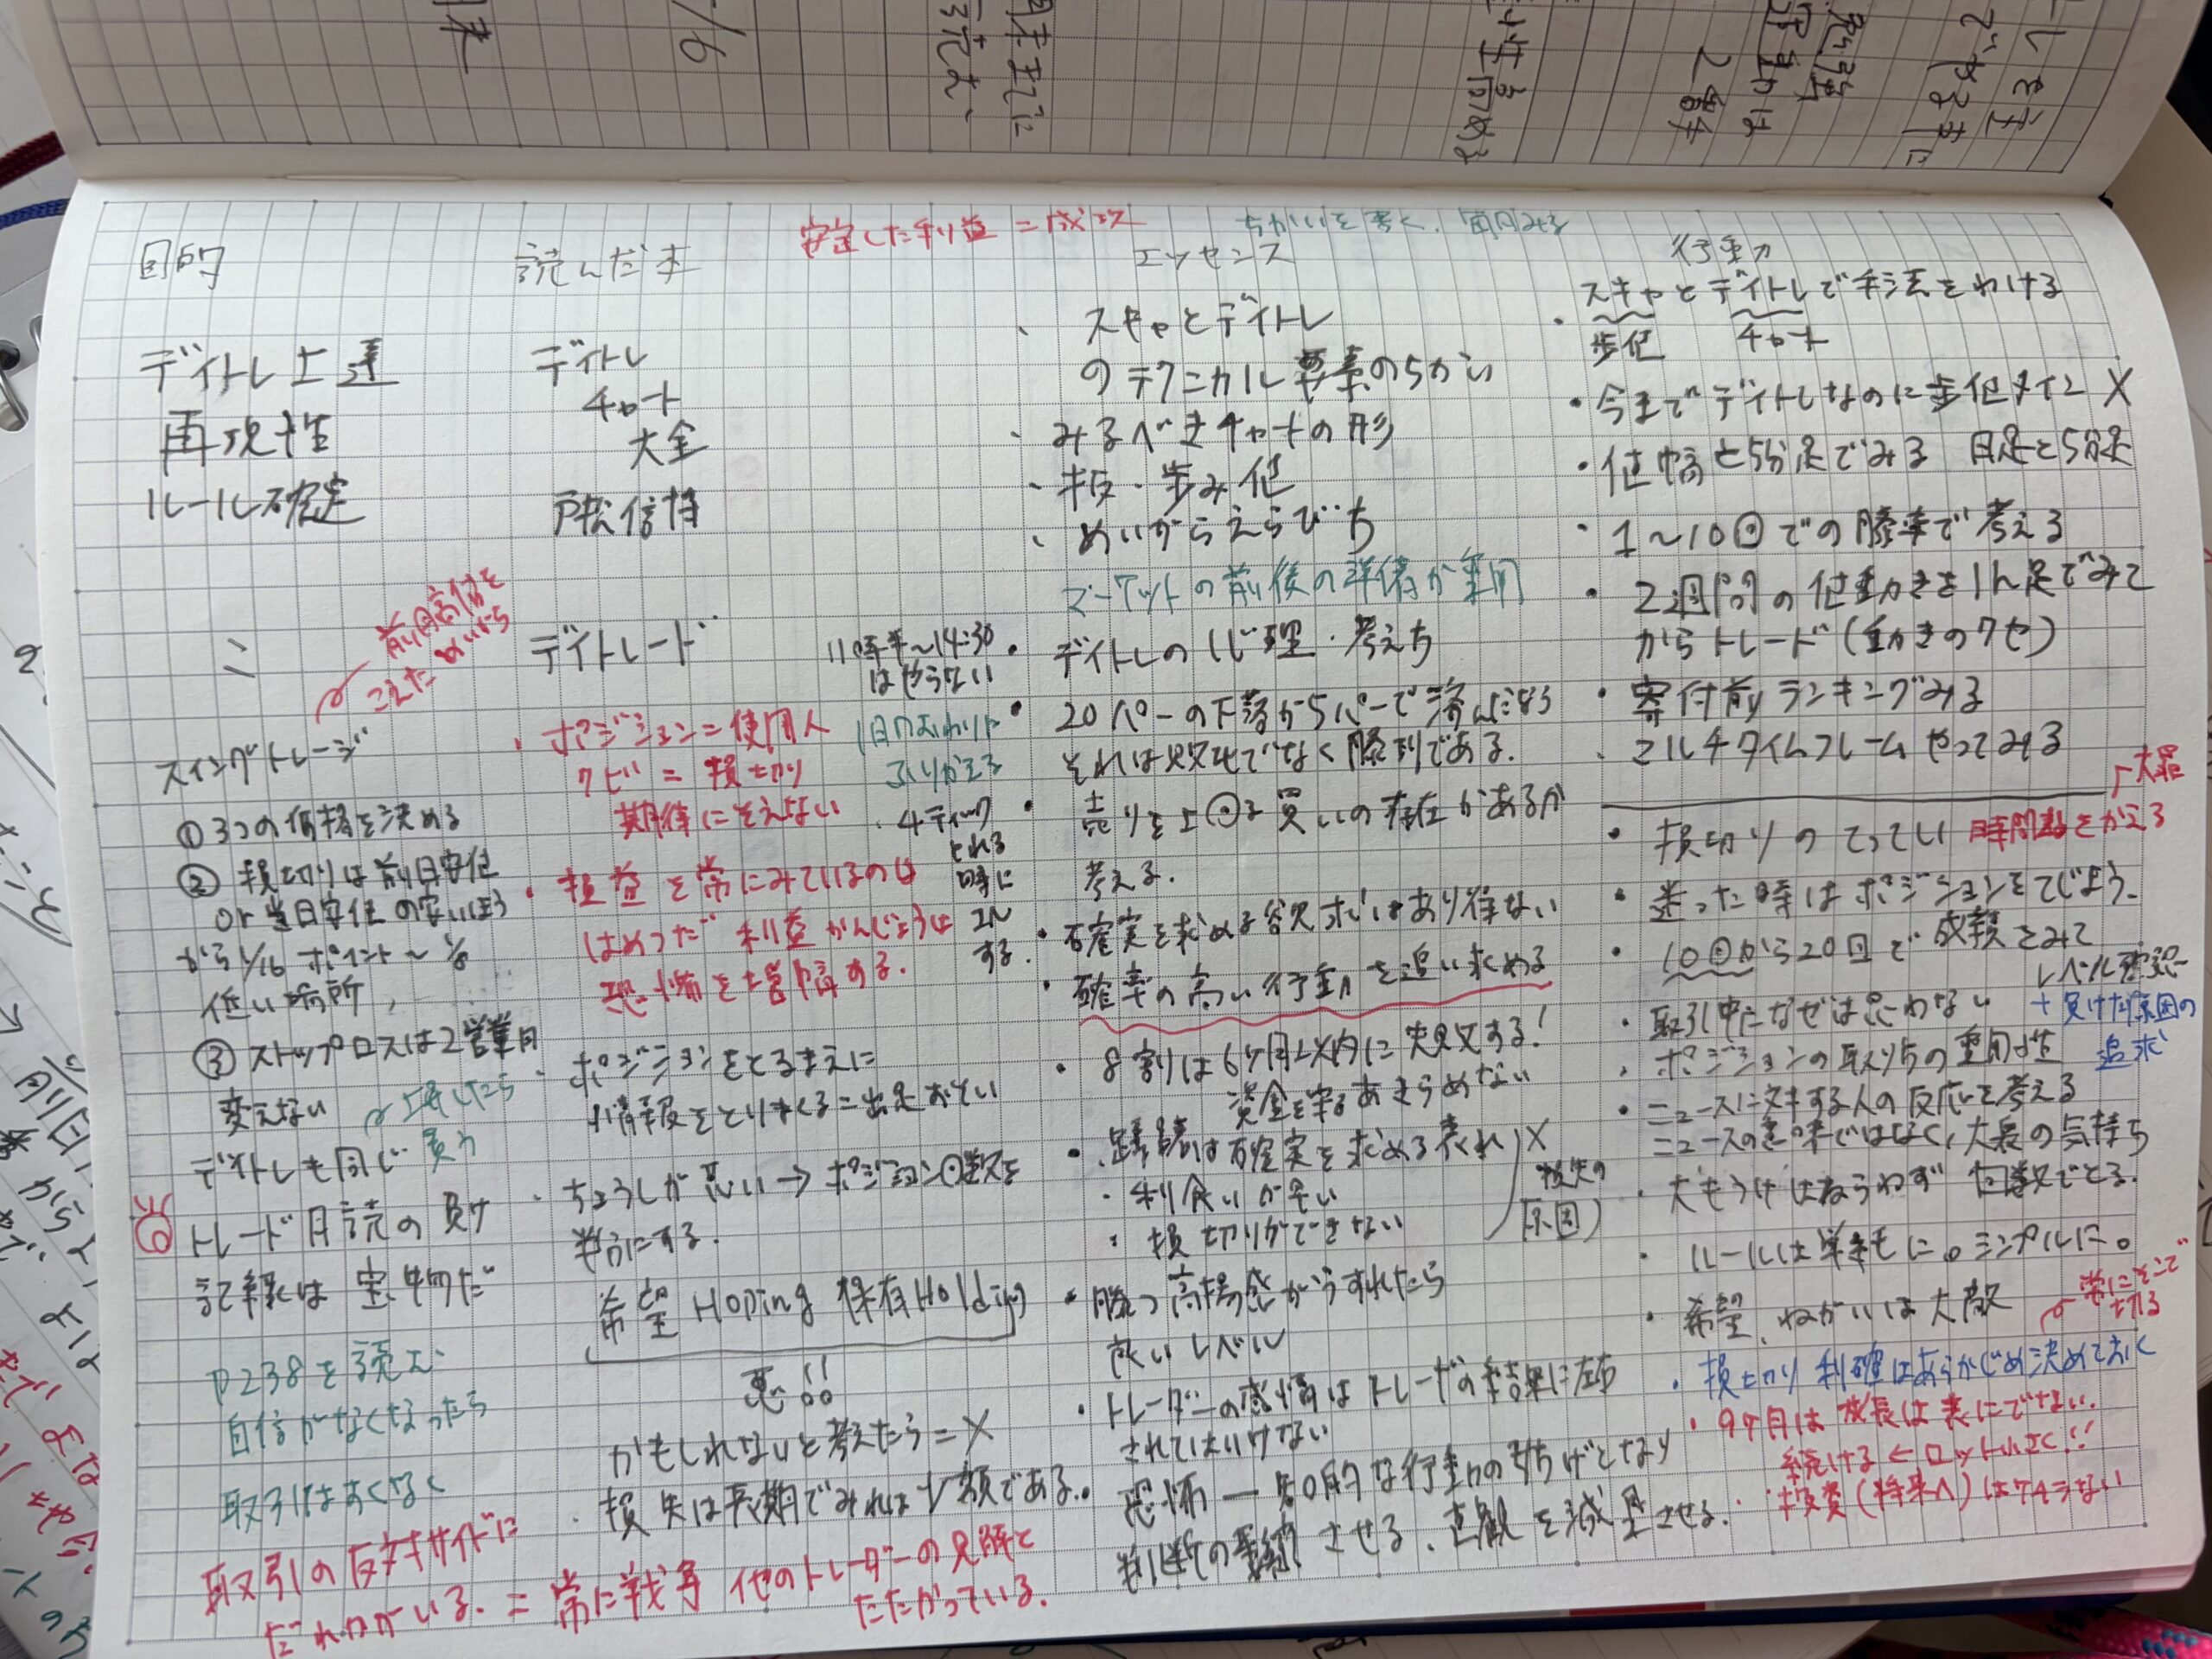 安定した利益=成功
ちがいを書く、毎日みる
目的
デイトレ上達
再現性
ルール確定
スイングトレード
①3つの価格を決める
② 損切りは前日安値
or 当日安値の安いほう
から1/16ポイント~1/8
低い場所
③ ストップロスは2営業日
変えない
デイトレも同じ
買う
前日高値を
こえた
トレード日誌の負け
記録は宝物だ
P238を読む
自信がなくなったら
取引はすくなく
取引の反対サイドに
だれかがいる. = 常に戦争 他のトレーダーの見解と
たたかっている.
読んだ本
デイトレ
チャート
大全
戸松信博
デイトレード
・ポジション=使用人
クビ=損切り
期待にそえない
・損益を常にみているのは
はめつだ 利益かんじょうは
恐怖を増幅する.
・ポジションをとるまえに
情報をとりすぎる=出足おそい
・ちょうしが悪い→ポジション回数を
半分にする.
希望 Hoping 保有 Holding
悪!!
かもしれないと考えたら=×
・損失は長期でみれば少額である.
11時半~14:30
はやらない
1日のおわりに
ふりかえる
・4ティック
とれる
時に
する.
エッセンス
・スキャとデイトレ
のテクニカル要素のちがい
・みるべきチャートの形
・板・歩み値
・めいがらえらび方
マーケットの前後の準備が重要
・デイトレの心理・考え方
・20パーの下落が5パーで済んだなら
それは失敗でなく勝利である.
・売りを上回る買いの存在があるか
考える.
・確実を求める欲求はあり得ない
・確率の高い行動を追い求める
・8割は6ヶ月以内に失敗する!
資金を守る あきらめない
・躊躇は確実を求める表れ ×
・利食いが早い
・損切りができない
損失の
原因
・勝つ高揚感がうすれたら
良いレベル
・トレーダーの感情はトレードの結果に左右
されてはいけない
恐怖―知的な行動の妨げとなり
判断の萎縮させる、直観を減退させる.
行動
・スキャとデイトレで手法をわける
歩値 チャート
・今までデイトレなのに歩値メイン ×
・値幅と5分足でみる 日足と5分足
・1~10回での勝率で考える
・2週間の値動きを1h足でみて
からトレード(動きのクセ)
・寄付前ランキングみる
・マルチタイムフレームやってみる
大罪
・損切りのてってい 時間軸をかえる
・迷った時はポジションをとじよう.
・10回から20回で成績をみて
レベル確認
+負けた原因の
追求
・取引中になぜは思わない
・ポジションの取り方の重要性
・ニュースに対する人の反応を考える
ニュースの意味ではなく、大衆の気持ち
・大もうけはねらわず 回数でとる.
・ルールは単純に。シンプルに。
・希望、ねがいは大敵
常にそこで
切る
・損切り 利確はあらかじめ決めておく
・9ヶ月は成長は表にでない.
続ける ← ロット小さく!!
・投資(将来へ)はケチらない